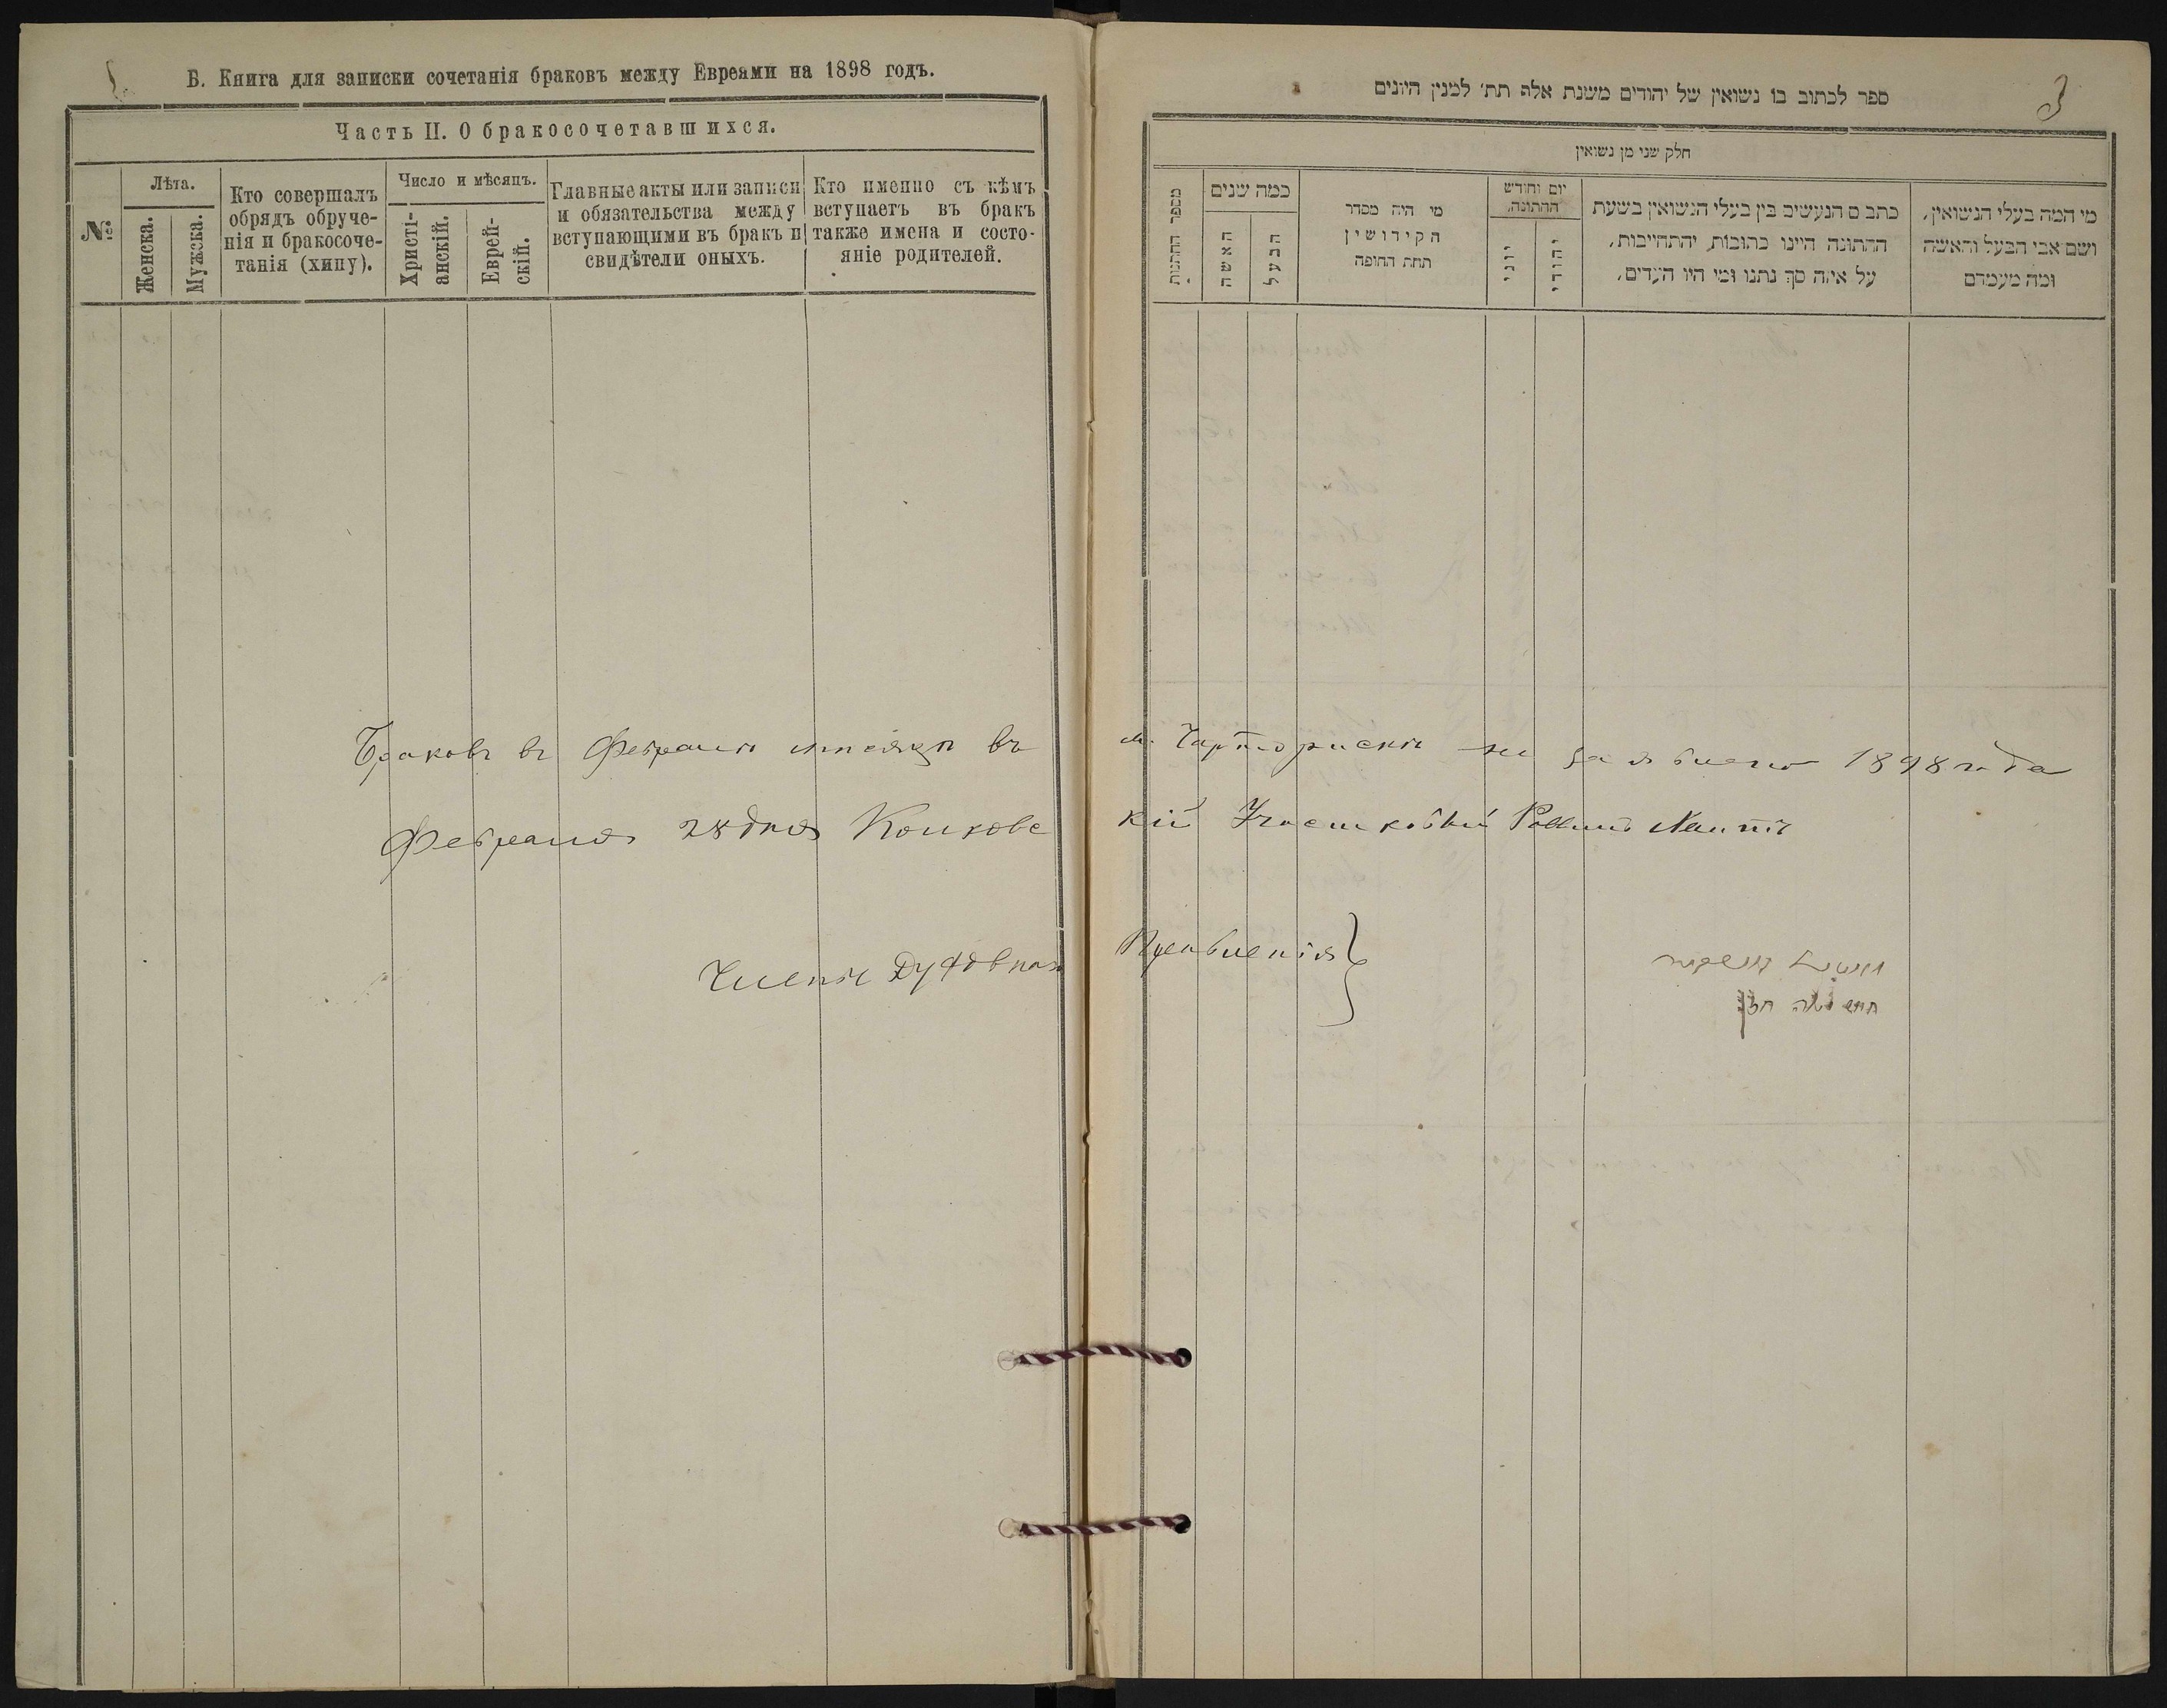 Б. Книга для записки сочетанія браковъ между Евреями на 1898 годъ.
Часть II. О бракосочетавшихся.
№
Лѣта.
Женска.
Мужска.
Кто совершалъ
обрядъ обруче-
нія и бракосоче-
танія (хипу).
Число и мѣсяцъ.
Христі-
анскій.
Еврей-
скій.
Главные акты или записи
и обязательства между
вступающими въ бракъ и
свидѣтели оныхъ.
Кто именно съ кѣмъ
вступаетъ въ бракъ
также имена и состо-
яніе родителей.
ספר לכתוב בו נשואין של יהודים משנת אלף תת׳ למנין היונים
3
חלק שני מן נשואין
מספר החתנות
כמה שנים
האשה
הבעל
מי היה מסדר
הקידושין
תחת החופה
יום וחודש
החתונה.
יוני
יהודי
כתבים הנעשים בין בעלי הנשואין בשעת
החתונה היינו כתובות, והתחייבות,
על איזה סך נתנו ומי היו העדים,
מי המה בעלי הנשואין,
ושם אבי הבעל והאשה
ומה מעמדם
Браковъ въ Февралѣ мѣсяцѣ въ м. Чарторискѣ не заявлено 1898 года
Февраля 28 дня Колковскій Участковый Раввинъ
Члены Духовнаго Правленія